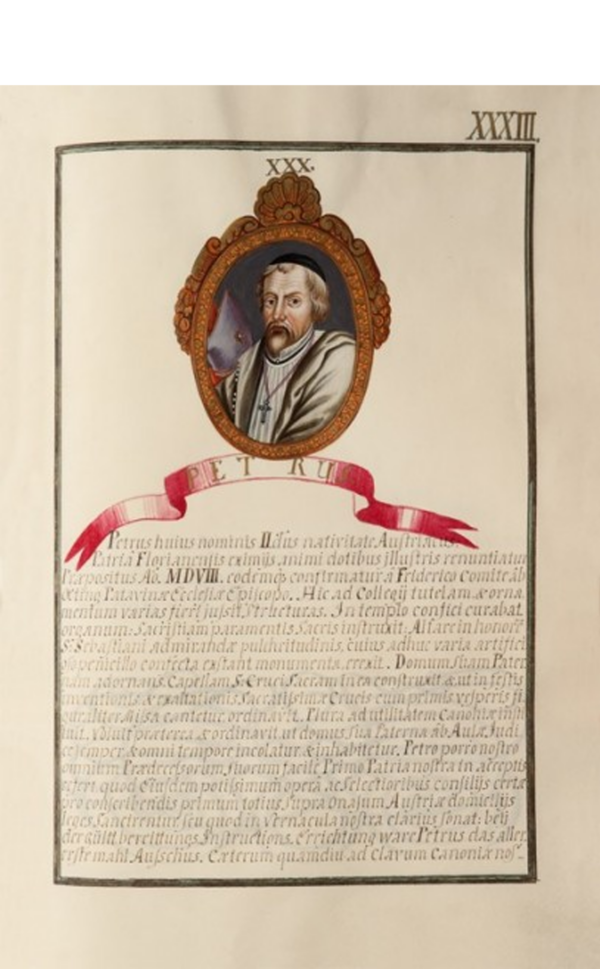 XXXIII.
XXX.
PETRUS
Petrus huius nominis II dus nativitate Austriacus.
Patria Florianensis eximijs animi dotibus illustris renuntiatur
Præpositus Aō. MDVIII. eodemq3 confirmatur à Friderico Comite ab
Patavinæ Ecclesiæ Episcopo. Hic ad Collegij tutelam & orna
mentum varias fieri jussit structuras. In templo confici curabat
organum. Sacristiam paramentis Sacris instruxit. Altare in honorē
S: Sebastiani admirandæ pulchritudinis, cuius adhuc varia artifici
penicillo confecta exstant monumenta, erexit. Domum suam Pater
nam adornans, Capellam S: Cruci Sacram in ea construxit & ut in festis
inventionis & exaltationis Sacratissimæ Crucis cum primis vesperis fi
guraliter Missa cantetur, ordinavit. Plura ad utilitatem Canoniæ insti
tuit. Voluit præterea & ordinavit ut domus sua Paterna ab Aulæ Judi
ce semper & omni tempore incolatur & inhabitetur. Petro porro nostro
omnium Prædecessorum suorum facile Primo Patria nostra in acceptis
refert quod Eiusdem potissimum opera ac Selectioribus consilijs certæ
pro conscribendis primum totius supra Onasum Austriæ domicilijs
leges Sancirentur, seu quod in Vernacula nostra clarius sonat: beÿ
der gültt bereittungs Instructions Erreichtung ware Petrus das aller
erste mahl Ausschus. Cæterum quamdiu ad clavum Canoniæ nos-